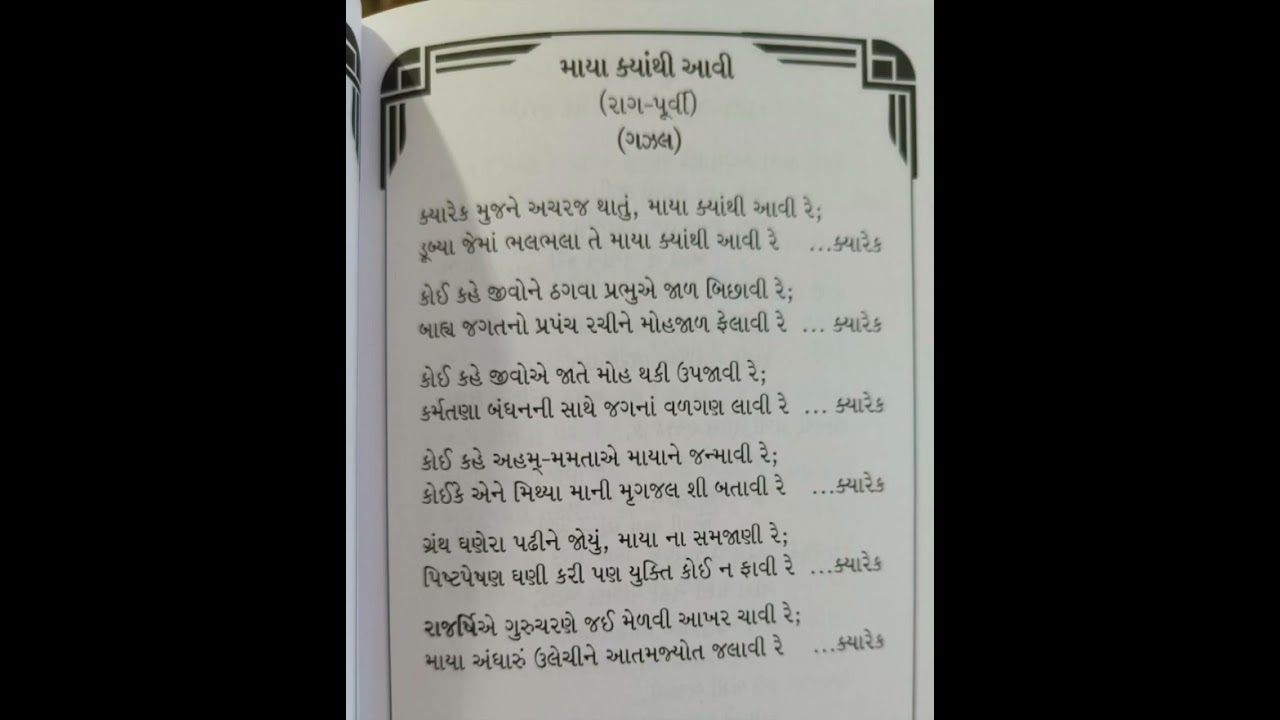 માયા ક્યાંથી આવી
(રાગ-પૂર્વી)
(ગઝલ)
ક્યારેક મુજને અચરજ થાતું, માયા ક્યાંથી આવી રે;
ડૂબ્યા જેમાં ભલભલા તે માયા ક્યાંથી આવી રે ...ક્યારેક
કોઈ કહે જીવોને ઠગવા પ્રભુએ જાળ બિછાવી રે;
બાહ્ય જગતનો પ્રપંચ રચીને મોહજાળ ફેલાવી રે ... ક્યારેક
કોઈ કહે જીવોએ જાતે મોહ થકી ઉપજાવી રે;
કર્મતણા બંધનની સાથે જગનાં વળગણ લાવી રે ... ક્યારેક
કોઈ કહે અહમ્-મમતાએ માયાને જન્માવી રે;
કોઈકે એને મિથ્યા માની મૃગજલ શી બતાવી રે ...ક્યારેક
ગ્રંથ ઘણેરા પઢીને જોયું, માયા ના સમજાણી રે;
પિષ્ટપેષણ ઘણી કરી પણ યુક્તિ કોઈ ન ફાવી રે ...ક્યારેક
રાજર્ષિએ ગુરુચરણે જઈ મેળવી આખર ચાવી રે;
માયા અંધારું ઉલેચીને આતમજ્યોત જલાવી રે ...ક્યારેક